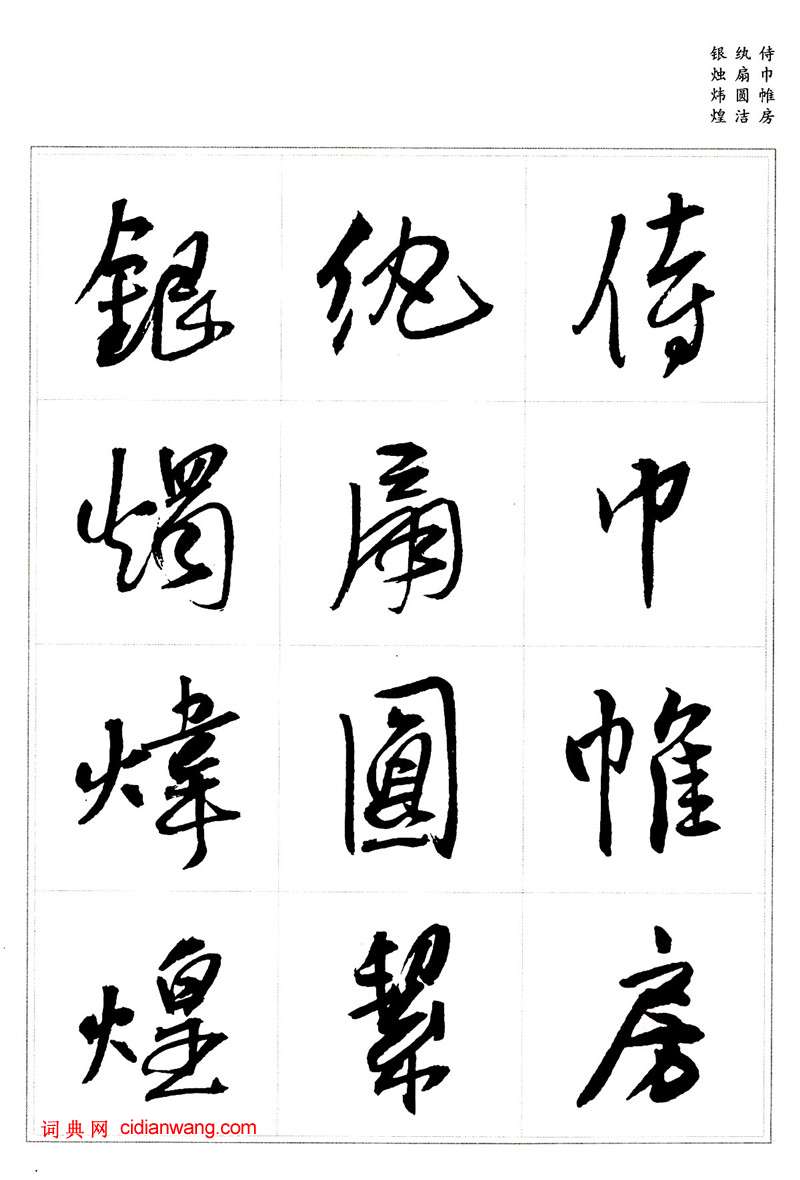 侍巾帷房
纨扇圆洁
银烛炜煌
侍巾帷房
紈扇圓絜
銀燭煒煌
词典网 cidianwang.com